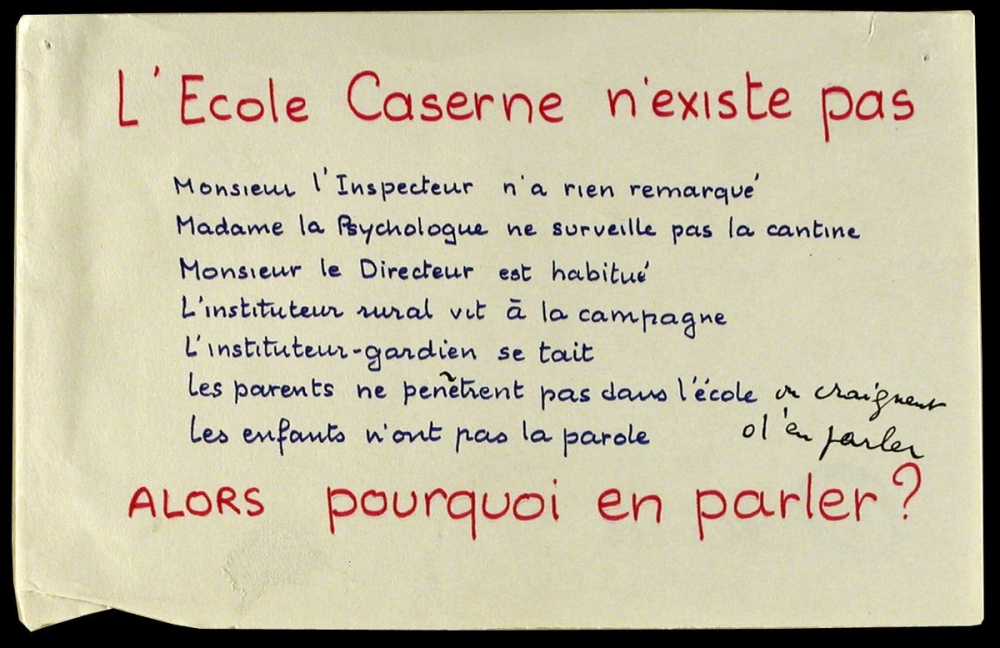 L'Ecole Caserne n'existe pas
Monsieur l'Inspecteur n'a rien remarqué
Madame la Psychologue ne surveille pas la cantine
Monsieur le Directeur est habitué
L'instituteur rural vit à la campagne
L'instituteur-gardien se tait
Les parents ne penètrent pas dans l'école ou craignent
d'en parler
Les enfants n'ont pas la parole
ALORS pourquoi en parler ?